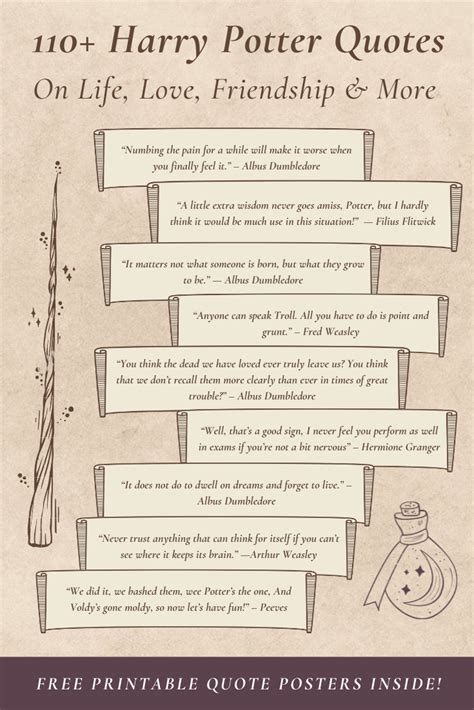 110+ Harry Potter Quotes
On Life, Love, Friendship & More
“Numbing the pain for a while will make it worse when
you finally feel it.” – Albus Dumbledore
“A little extra wisdom never goes amiss, Potter, but I hardly
think it would be much use in this situation!” — Filius Flitwick
“It matters not what someone is born, but what they grow
to be.” — Albus Dumbledore
“Anyone can speak Troll. All you have to do is point and
grunt.” – Fred Weasley
“You think the dead we have loved ever truly leave us? You think
that we don’t recall them more clearly than ever in times of great
trouble?” – Albus Dumbledore
“Well, that’s a good sign, I never feel you perform as well
in exams if you’re not a bit nervous” – Hermione Granger
“It does not do to dwell on dreams and forget to live.” –
Albus Dumbledore
“Never trust anything that can think for itself if you can’t
see where it keeps its brain.” —Arthur Weasley
“We did it, we bashed them, wee Potter’s the one, And
Voldy’s gone moldy, so now let’s have fun!” – Peeves
FREE PRINTABLE QUOTE POSTERS INSIDE!